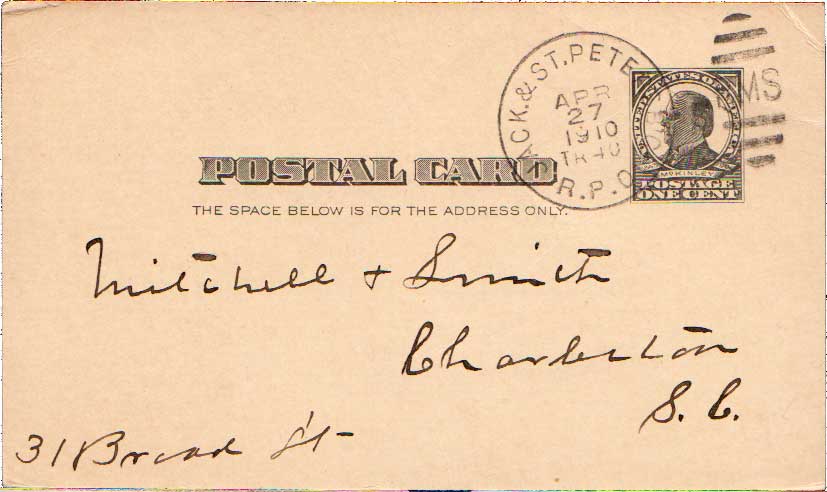 JACK. & ST. PETE
APR
27
1910
TR 40
R.P.O.
RMS
UNITED STATES OF AMERICA
McKINLEY
POSTAGE
ONE CENT
POSTAL CARD
THE SPACE BELOW IS FOR THE ADDRESS ONLY.
Mitchell + Smith
Charleston
S. C.
31 Broad St